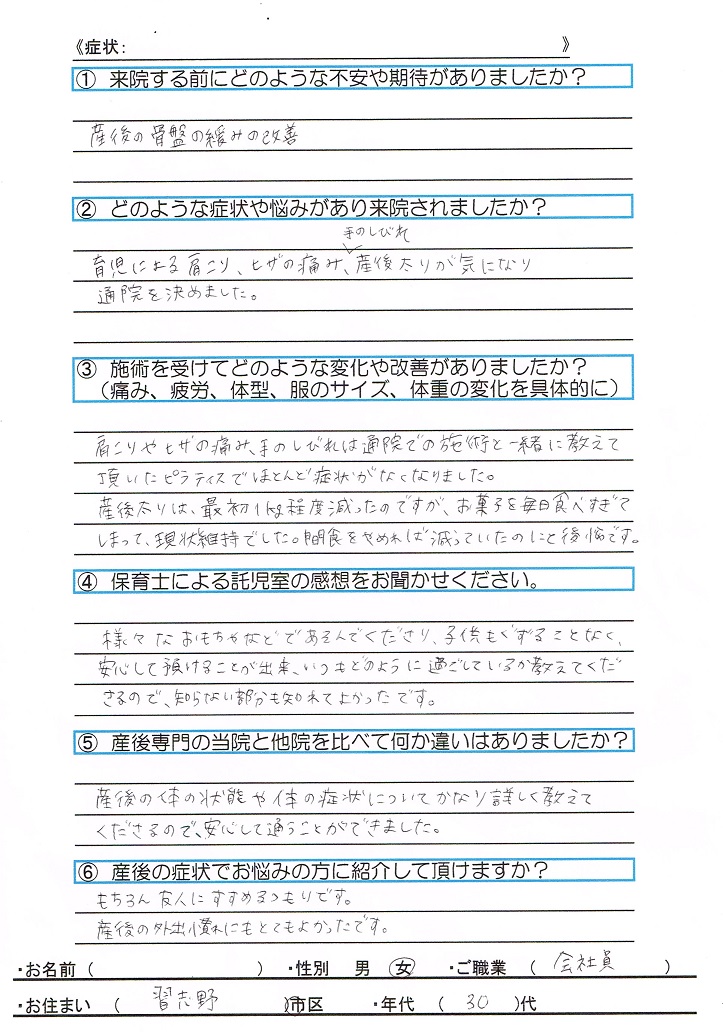 《症状: 》
① 来院する前にどのような不安や期待がありましたか？
産後の骨盤の緩みの改善
② どのような症状や悩みがあり来院されましたか？
手のしびれ
育児による肩こり、ヒザの痛み、産後太りが気になり
通院を決めました。
③ 施術を受けてどのような変化や改善がありましたか？
（痛み、疲労、体型、服のサイズ、体重の変化を具体的に）
肩こりやヒザの痛み、手のしびれは通院での施術と一緒に教えて
頂いたピラティスでほとんど症状がなくなりました。
産後太りは、最初1kg程度減ったのですが、お菓子を毎日食べすぎて
しまって、現状維持でした。間食をやめれば減っていたのにと後悔です。
④ 保育士による託児室の感想をお聞かせください。
様々なおもちゃなどであそんでくださり、子供もぐずることなく、
安心して預けることが出来、いつもどのように過ごしているか教えてくだ
さるので、知らない部分も知れてよかったです。
⑤ 産後専門の当院と他院を比べて何か違いはありましたか？
産後の体の状態や体の症状についてかなり詳しく教えて
くださるので、安心して通うことができました。
⑥ 産後の症状でお悩みの方に紹介して頂けますか？
もちろん友人にすすめるつもりです。
産後の外出慣れにもとてもよかったです。
・お名前（ ） ・性別 男 女 ・ご職業 （ 会社員 ）
・お住まい （ 習志野 ）市区 ・年代 （ 30 ）代